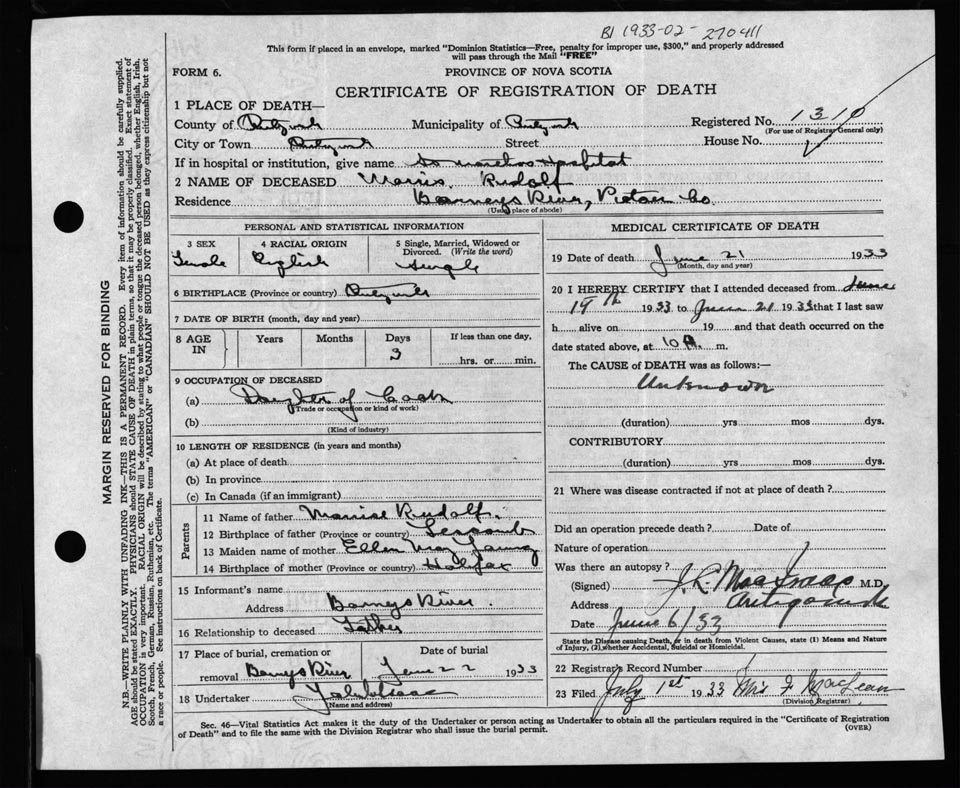 BI 1933-02-270411
This form if placed in an envelope, marked "Dominion Statistics—Free, penalty for improper use, $300," and properly addressed
will pass through the Mail "FREE"
FORM 6.
PROVINCE OF NOVA SCOTIA
CERTIFICATE OF REGISTRATION OF DEATH
1 PLACE OF DEATH—
Registered No. 1310
(For use of Registrar General only)
County of Municipality of
City or Town Street House No.
If in hospital or institution, give name Hospital
2 NAME OF DECEASED Rudolf
Residence Barneys River, Pictou Co.
(Usual place of abode)
PERSONAL AND STATISTICAL INFORMATION
3 SEX 4 RACIAL ORIGIN 5 Single, Married, Widowed or Divorced. (Write the word)
Female English Single
6 BIRTHPLACE (Province or country)
7 DATE OF BIRTH (month, day and year)
8 AGE IN Years Months Days If less than one day,
3
hrs. or min.
9 OCCUPATION OF DECEASED
(a) Daughter of
(Trade or occupation or kind of work)
(b)
(Kind of industry)
10 LENGTH OF RESIDENCE (in years and months)
(a) At place of death
(b) In province
(c) In Canada (if an immigrant)
Parents
11 Name of father Rudolf.
12 Birthplace of father (Province or country)
13 Maiden name of mother Ellen May Young
14 Birthplace of mother (Province or country) Halifax
15 Informant's name
Address Barnys River.
16 Relationship to deceased Father
17 Place of burial, cremation or removal Date of burial
Barnys River June 22 1933
18 Undertaker
(Name and address)
MEDICAL CERTIFICATE OF DEATH
19 Date of death June 21 1933
(Month, day and year)
20 I HEREBY CERTIFY that I attended deceased from June
19th 1933 to June 21 1933 that I last saw
h alive on 19 and that death occurred on the
date stated above, at 10 m.
The CAUSE OF DEATH was as follows:—
Unknown
(duration) yrs mos dys.
CONTRIBUTORY
(duration) yrs mos dys.
21 Where was disease contracted if not at place of death?
Did an operation precede death? Date of
Nature of operation
Was there an autopsy?
(Signed) M.D.
Address Antigonish
Date June 6/33
State the Disease causing Death, or in death from Violent Causes, state (1) Means and Nature
of Injury, (2) whether Accidental, Suicidal or Homicidal.
22 Registrar's Record Number
23 Filed July 1st 1933 Mrs F MacLean
(Division Registrar)
Sec. 46—Vital Statistics Act makes it the duty of the Undertaker or person acting as Undertaker to obtain all the particulars required in the "Certificate of Registration
of Death" and to file the same with the Division Registrar who shall issue the burial permit.
(OVER)
MARGIN RESERVED FOR BINDING
N.B—WRITE PLAINLY WITH UNFADING INK—THIS IS A PERMANENT RECORD. Every item of information should be carefully supplied.
AGE should be stated EXACTLY. PHYSICIANS should STATE CAUSE OF DEATH in plain terms, so that it may be properly classified. Exact statement of
OCCUPATION is very important. RACIAL ORIGIN will be described by stating to what people or tongue the deceased person belonged, whether English, Irish,
Scotch, French, German, Russian, Ruthenian, etc. The terms "AMERICAN" or "CANADIAN" SHOULD NOT BE USED as they express citizenship but not
a race or people. See instructions on back of Certificate.